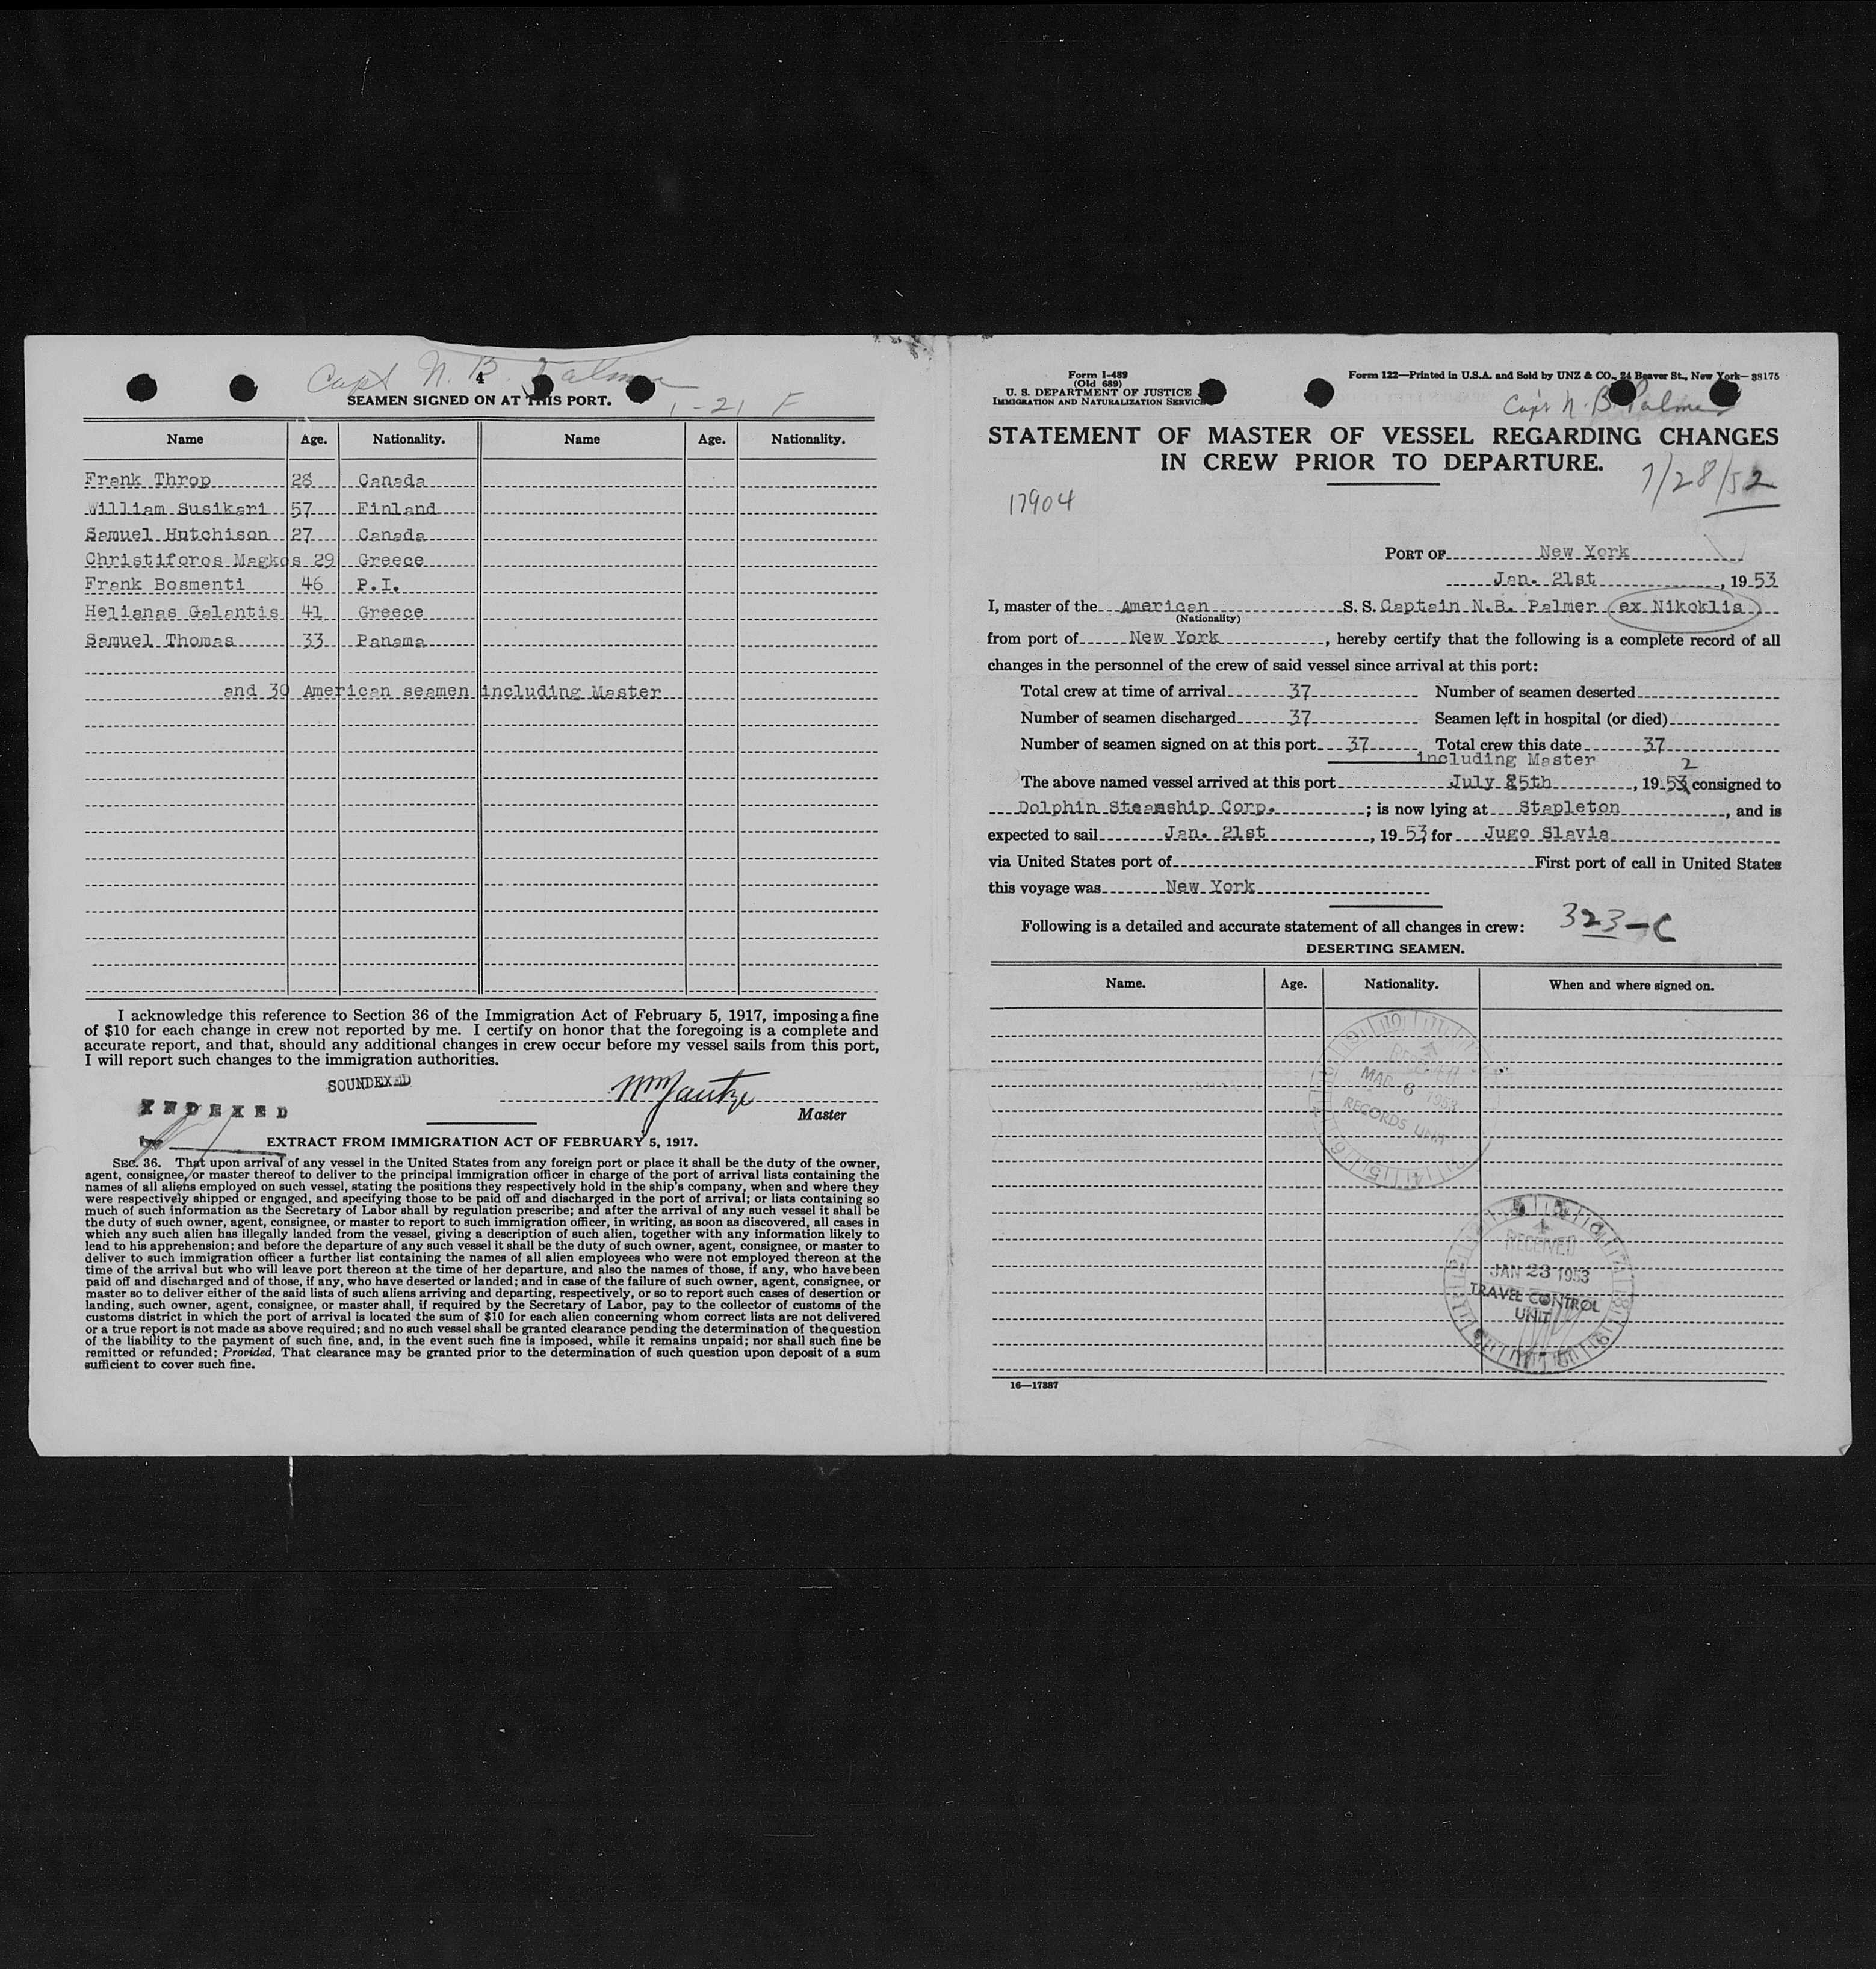 Capt N. B. Palmer
4
SEAMEN SIGNED ON AT THIS PORT.
1-21 F
Name Age. Nationality. Name Age. Nationality.
Frank Throp 28 Canada
William Susikari 57 Finland
Samuel Hutchison 27 Canada
Christiforos Magkos 29 Greece
Frank Bosmenti 46 P.I.
Helianas Galantis 41 Greece
Samuel Thomas 33 Panama
and 30 American seamen including Master
I acknowledge this reference to Section 36 of the Immigration Act of February 5, 1917, imposing a fine
of $10 for each change in crew not reported by me. I certify on honor that the foregoing is a complete and
accurate report, and that, should any additional changes in crew occur before my vessel sails from this port,
I will report such changes to the immigration authorities.
SOUNDEXED
INDEXED
Master
EXTRACT FROM IMMIGRATION ACT OF FEBRUARY 5, 1917.
SEC. 36. That upon arrival of any vessel in the United States from any foreign port or place it shall be the duty of the owner,
agent, consignee, or master thereof to deliver to the principal immigration officer in charge of the port of arrival lists containing the
names of all aliens employed on such vessel, stating the positions they respectively hold in the ship's company, when and where they
were respectively shipped or engaged, and specifying those to be paid off and discharged in the port of arrival; or lists containing so
much of such information as the Secretary of Labor shall by regulation prescribe; and after the arrival of any such vessel it shall be
the duty of such owner, agent, consignee, or master to report to such immigration officer, in writing, as soon as discovered, all cases in
which any such alien has illegally landed from the vessel, giving a description of such alien, together with any information likely to
lead to his apprehension; and before the departure of any such vessel it shall be the duty of such owner, agent, consignee, or master to
deliver to such immigration officer a further list containing the names of all alien employees who were not employed thereon at the
time of the arrival but who will leave port thereon at the time of her departure, and also the names of those, if any, who have been
paid off and discharged and of those, if any, who have deserted or landed; and in case of the failure of such owner, agent, consignee, or
master so to deliver either of the said lists of such aliens arriving and departing, respectively, or so to report such cases of desertion or
landing, such owner, agent, consignee, or master shall, if required by the Secretary of Labor, pay to the collector of customs of the
customs district in which the port of arrival is located the sum of $10 for each alien concerning whom correct lists are not delivered
or a true report is not made as above required; and no such vessel shall be granted clearance pending the determination of the question
of the liability to the payment of such fine, and, in the event such fine is imposed, while it remains unpaid; nor shall such fine be
remitted or refunded; Provided, That clearance may be granted prior to the determination of such question upon deposit of a sum
sufficient to cover such fine.
Form I-489
(Old 689)
U. S. DEPARTMENT OF JUSTICE
IMMIGRATION AND NATURALIZATION SERVICE
Form 122—Printed in U.S.A. and Sold by UNZ & CO., 24 Beaver St., New York—38175
Capt N. B Palmer
STATEMENT OF MASTER OF VESSEL REGARDING CHANGES
IN CREW PRIOR TO DEPARTURE.
7/28/52
17904
PORT OF New York
Jan. 21st, 1953
I, master of the American S. S. Captain N.B. Palmer (ex Nikoklis)
(Nationality)
from port of New York, hereby certify that the following is a complete record of all
changes in the personnel of the crew of said vessel since arrival at this port:
Total crew at time of arrival 37 Number of seamen deserted
Number of seamen discharged 37 Seamen left in hospital (or died)
Number of seamen signed on at this port 37 Total crew this date 37
including Master
2
The above named vessel arrived at this port July 25th, 1953 consigned to
Dolphin Steamship Corp.; is now lying at Stapleton, and is
expected to sail Jan. 21st, 1953 for Jugo Slavia
via United States port of First port of call in United States
this voyage was New York
Following is a detailed and accurate statement of all changes in crew: 323-C
DESERTING SEAMEN.
Name. Age. Nationality. When and where signed on.
RECEIVED
MAR 6 1953
RECORDS UNIT
RECEIVED
JAN 23 1953
TRAVEL CONTROL
UNIT
16—17387